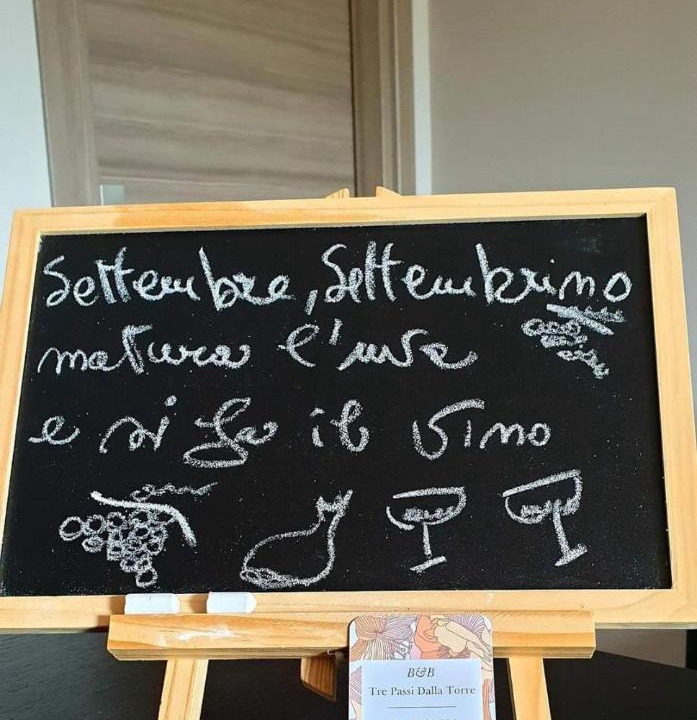 Settembre, Settembrino
matura l'uva
e si fa il vino
B&B
Tre Passi Dalla Torre